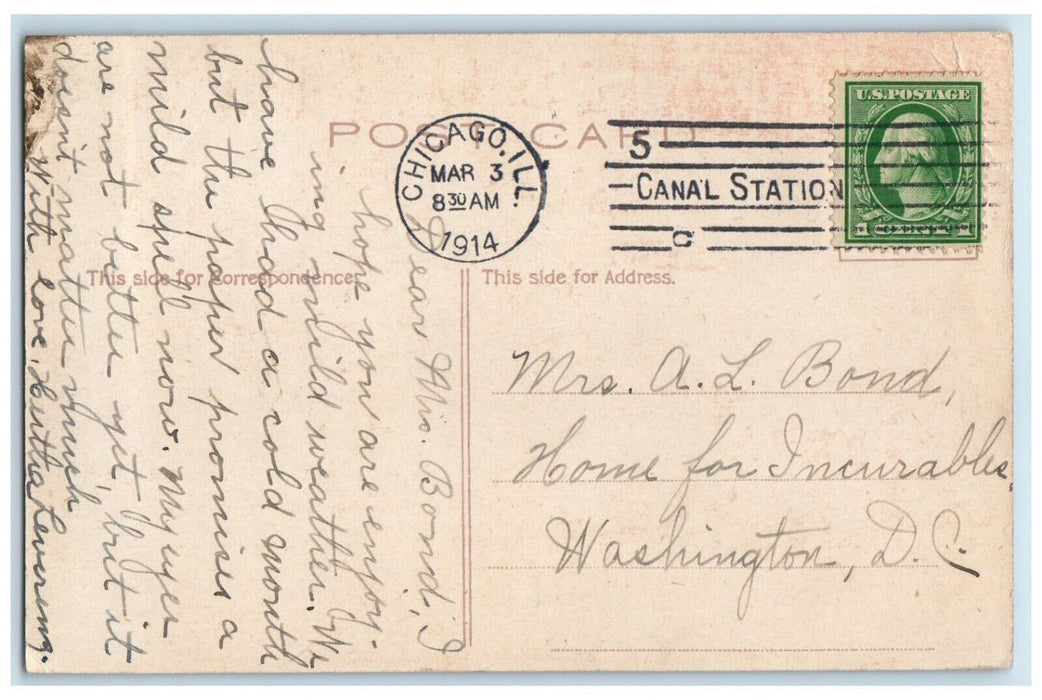 POST CARD
CHICAGO, ILL.
MAR 3
8 30 AM
1914
5
CANAL STATION
C
U.S. POSTAGE
This side for Correspondence.
This side for Address.
Dear Mrs. Bond, I
hope you are enjoy-
ing mild weather. We
have had a cold month
but the paper promises a
mild spell now. My eyes
are not better yet, but it
doesn't matter much
With love, Levering.
Mrs. A. L. Bond,
Home for Incurables,
Washington, D.C.